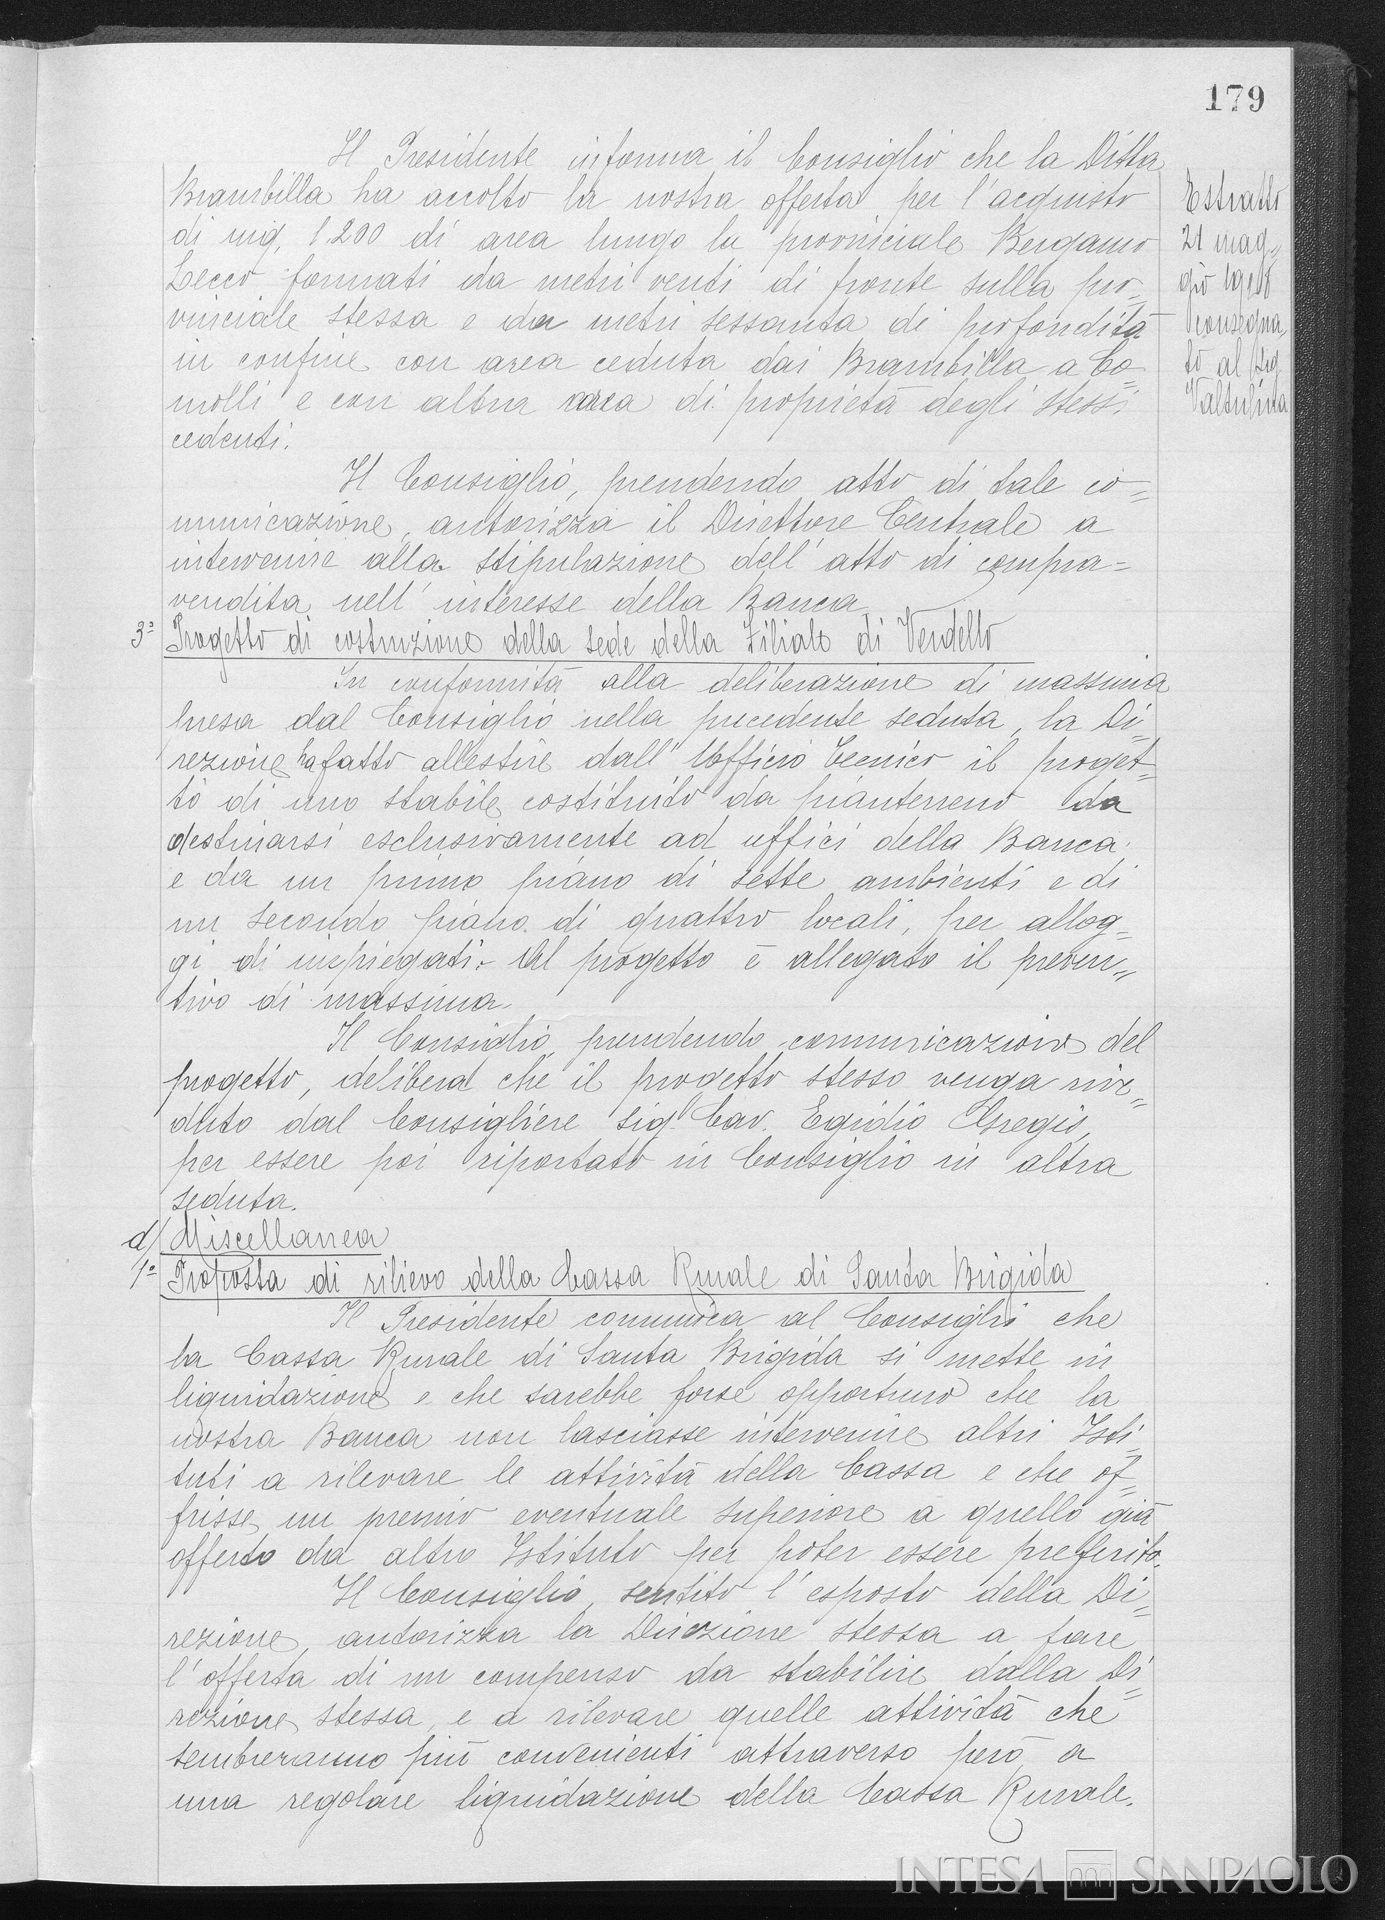 179
Il Presidente informa il Consiglio che la Ditta
Brambilla ha accolto la nostra offerta per l'acquisto
di mq. 1.200 di area lungo la provinciale Bergamo
Lecco formati da metri venti di fronte sulla pro=
vinciale stessa e da metri sessanta di profondità
in confine con area ceduta dai Brambilla a Co=
molli e con altra area di proprietà degli stessi
cedenti.
Estratto
21 mag=
gio
consegna
to al sig
Valtulina
Il Consiglio, prendendo atto di tale co=
municazione, autorizza il Direttore Centrale a
intervenire alla stipulazione dell'atto di compra=
vendita nell'interesse della Banca.
3° Progetto di costruzione della sede della Filiale di Verdello
In conformità alla deliberazione di massima
presa dal Consiglio nella precedente seduta, la Di=
rezione ha fatto allestire dall'Ufficio Tecnico il proget=
to di uno stabile costituito da pianterreno da
destinarsi esclusivamente ad uffici della Banca
e da un primo piano di sette ambienti e di
un secondo piano di quattro locali, per allog=
gi di impiegati. Al progetto è allegato il preven=
tivo di massima.
Il Consiglio, prendendo comunicazione del
progetto, delibera che il progetto stesso venga rive=
duto dal Consigliere Sig. Cav. Egidio Gregis,
per essere poi riportato in Consiglio in altra
seduta.
d/ Miscellanea
1° Proposta di rilievo della Cassa Rurale di Santa Brigida
Il Presidente comunica al Consiglio che
la Cassa Rurale di Santa Brigida si mette in
liquidazione e che sarebbe forse opportuno che la
nostra Banca non lasciasse intervenire altri Isti=
tuti a rilevare le attività della Cassa e che of=
frisse un premio eventuale superiore a quello già
offerto da altro Istituto per poter essere preferito.
Il Consiglio, sentito l'esposto della Di=
rezione, autorizza la Direzione stessa a fare
l'offerta di un compenso da stabilire dalla Di=
rezione stessa, e a rilevare quelle attività che
sembreranno più convenienti attraverso però a
una regolare liquidazione della Cassa Rurale.
INTESA SANPAOLO